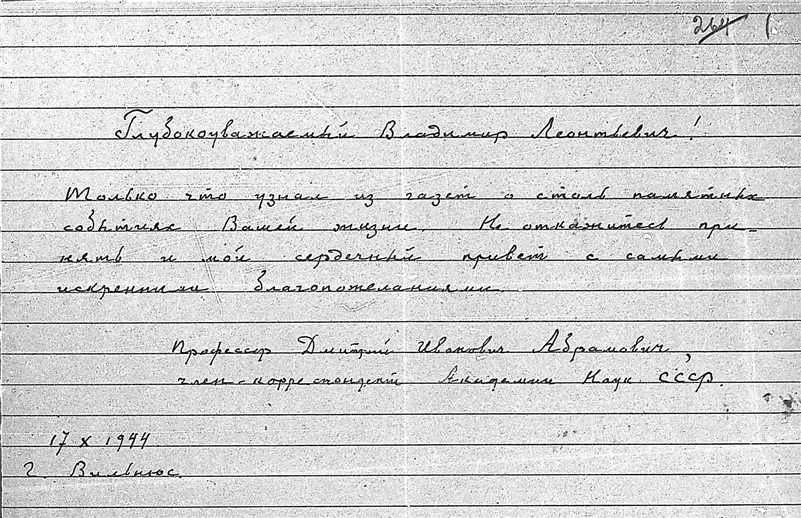 264 (
Глубокоуважаемый Владимир Леонтьевич!
Только что узнал из газет о столь памятных
событиях Вашей жизни. Не откажитесь при-
нять и мой сердечный привет с самыми
искренними благопожеланиями.
Профессор Дмитрий Иванович Абрамович,
член-корреспондент Академии Наук СССР.
17 X 1944
г. Вильнюс.